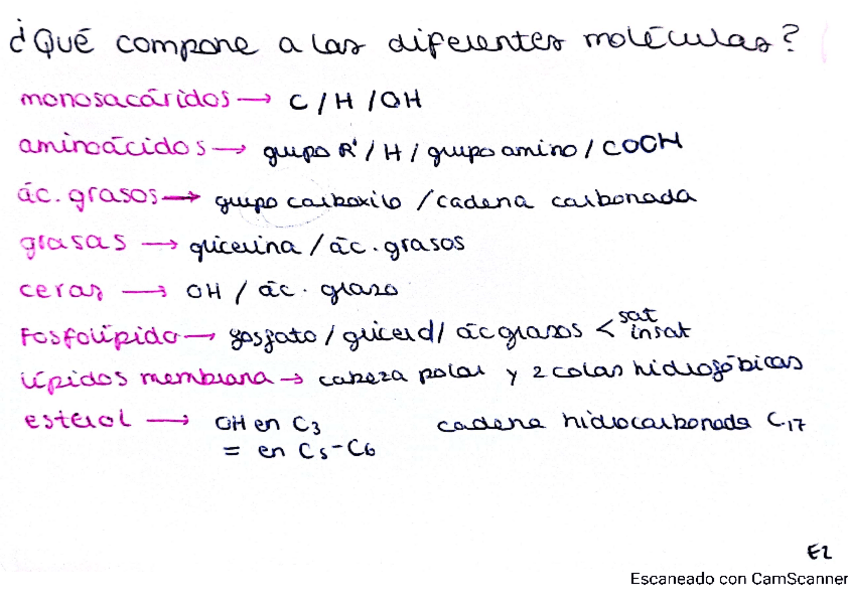 ¿Qué compone a las diferentes moléculas?
monosacáridos → C / H / OH
aminoácidos → grupo R' / H / grupo amino / COOH
ác. grasos → grupo carboxilo / cadena carbonada
grasas → glicerina / ác. grasos
ceras → OH / ác. graso
Fosfolípido → fosfato / glicerol / ác grasos < sat insat
lípidos membrana → cabeza polar y 2 colas hidrofóbicas
esterol → OH en C3 cadena hidrocarbonada C17
= en C5-C6
E2
Escaneado con CamScanner